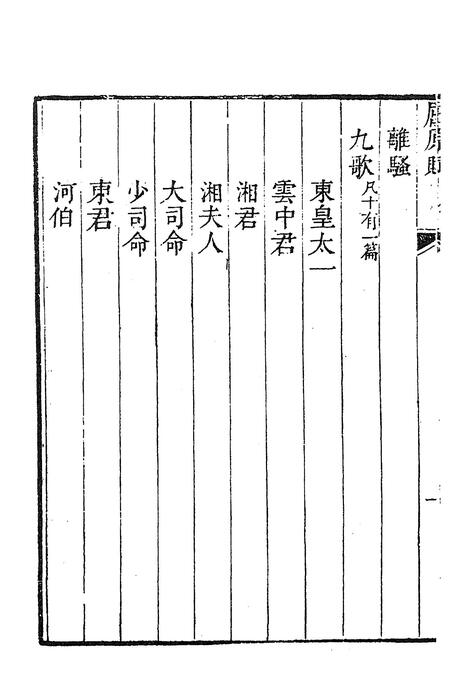 離騷
九歌凡十有一篇
東皇太一
雲中君
湘君
湘夫人
大司命
少司命
東君
河伯